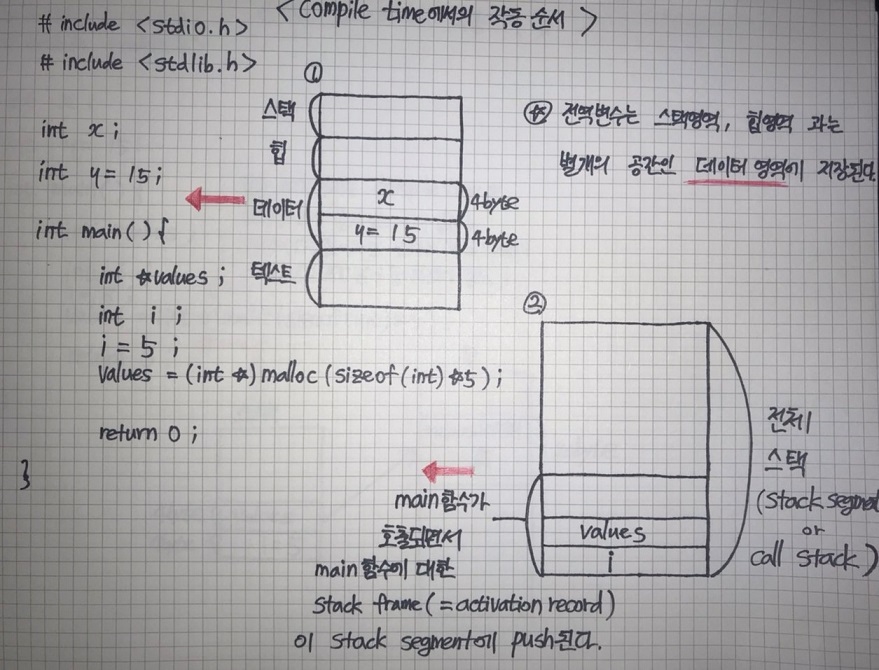 < Compile time에서의 작동 순서 >
# include <stdio.h>
# include <stdlib.h>
int x ;
int y = 15 ;
int main ( ) {
int *values ;
int i ;
i = 5 ;
values = (int *) malloc (sizeof (int) *5) ;
return 0 ;
}
①
스택
힙
데이터
x
4byte
y = 15
4byte
텍스트
* 전역변수는 스택영역, 힙영역 과는
별개의 공간인 데이터 영역에 저장된다.
②
values
i
전체
스택
(Stack segment
or
call stack)
main함수가
호출되면서
main함수에 대한
stack frame (= activation record)
이 stack segment에 push된다.